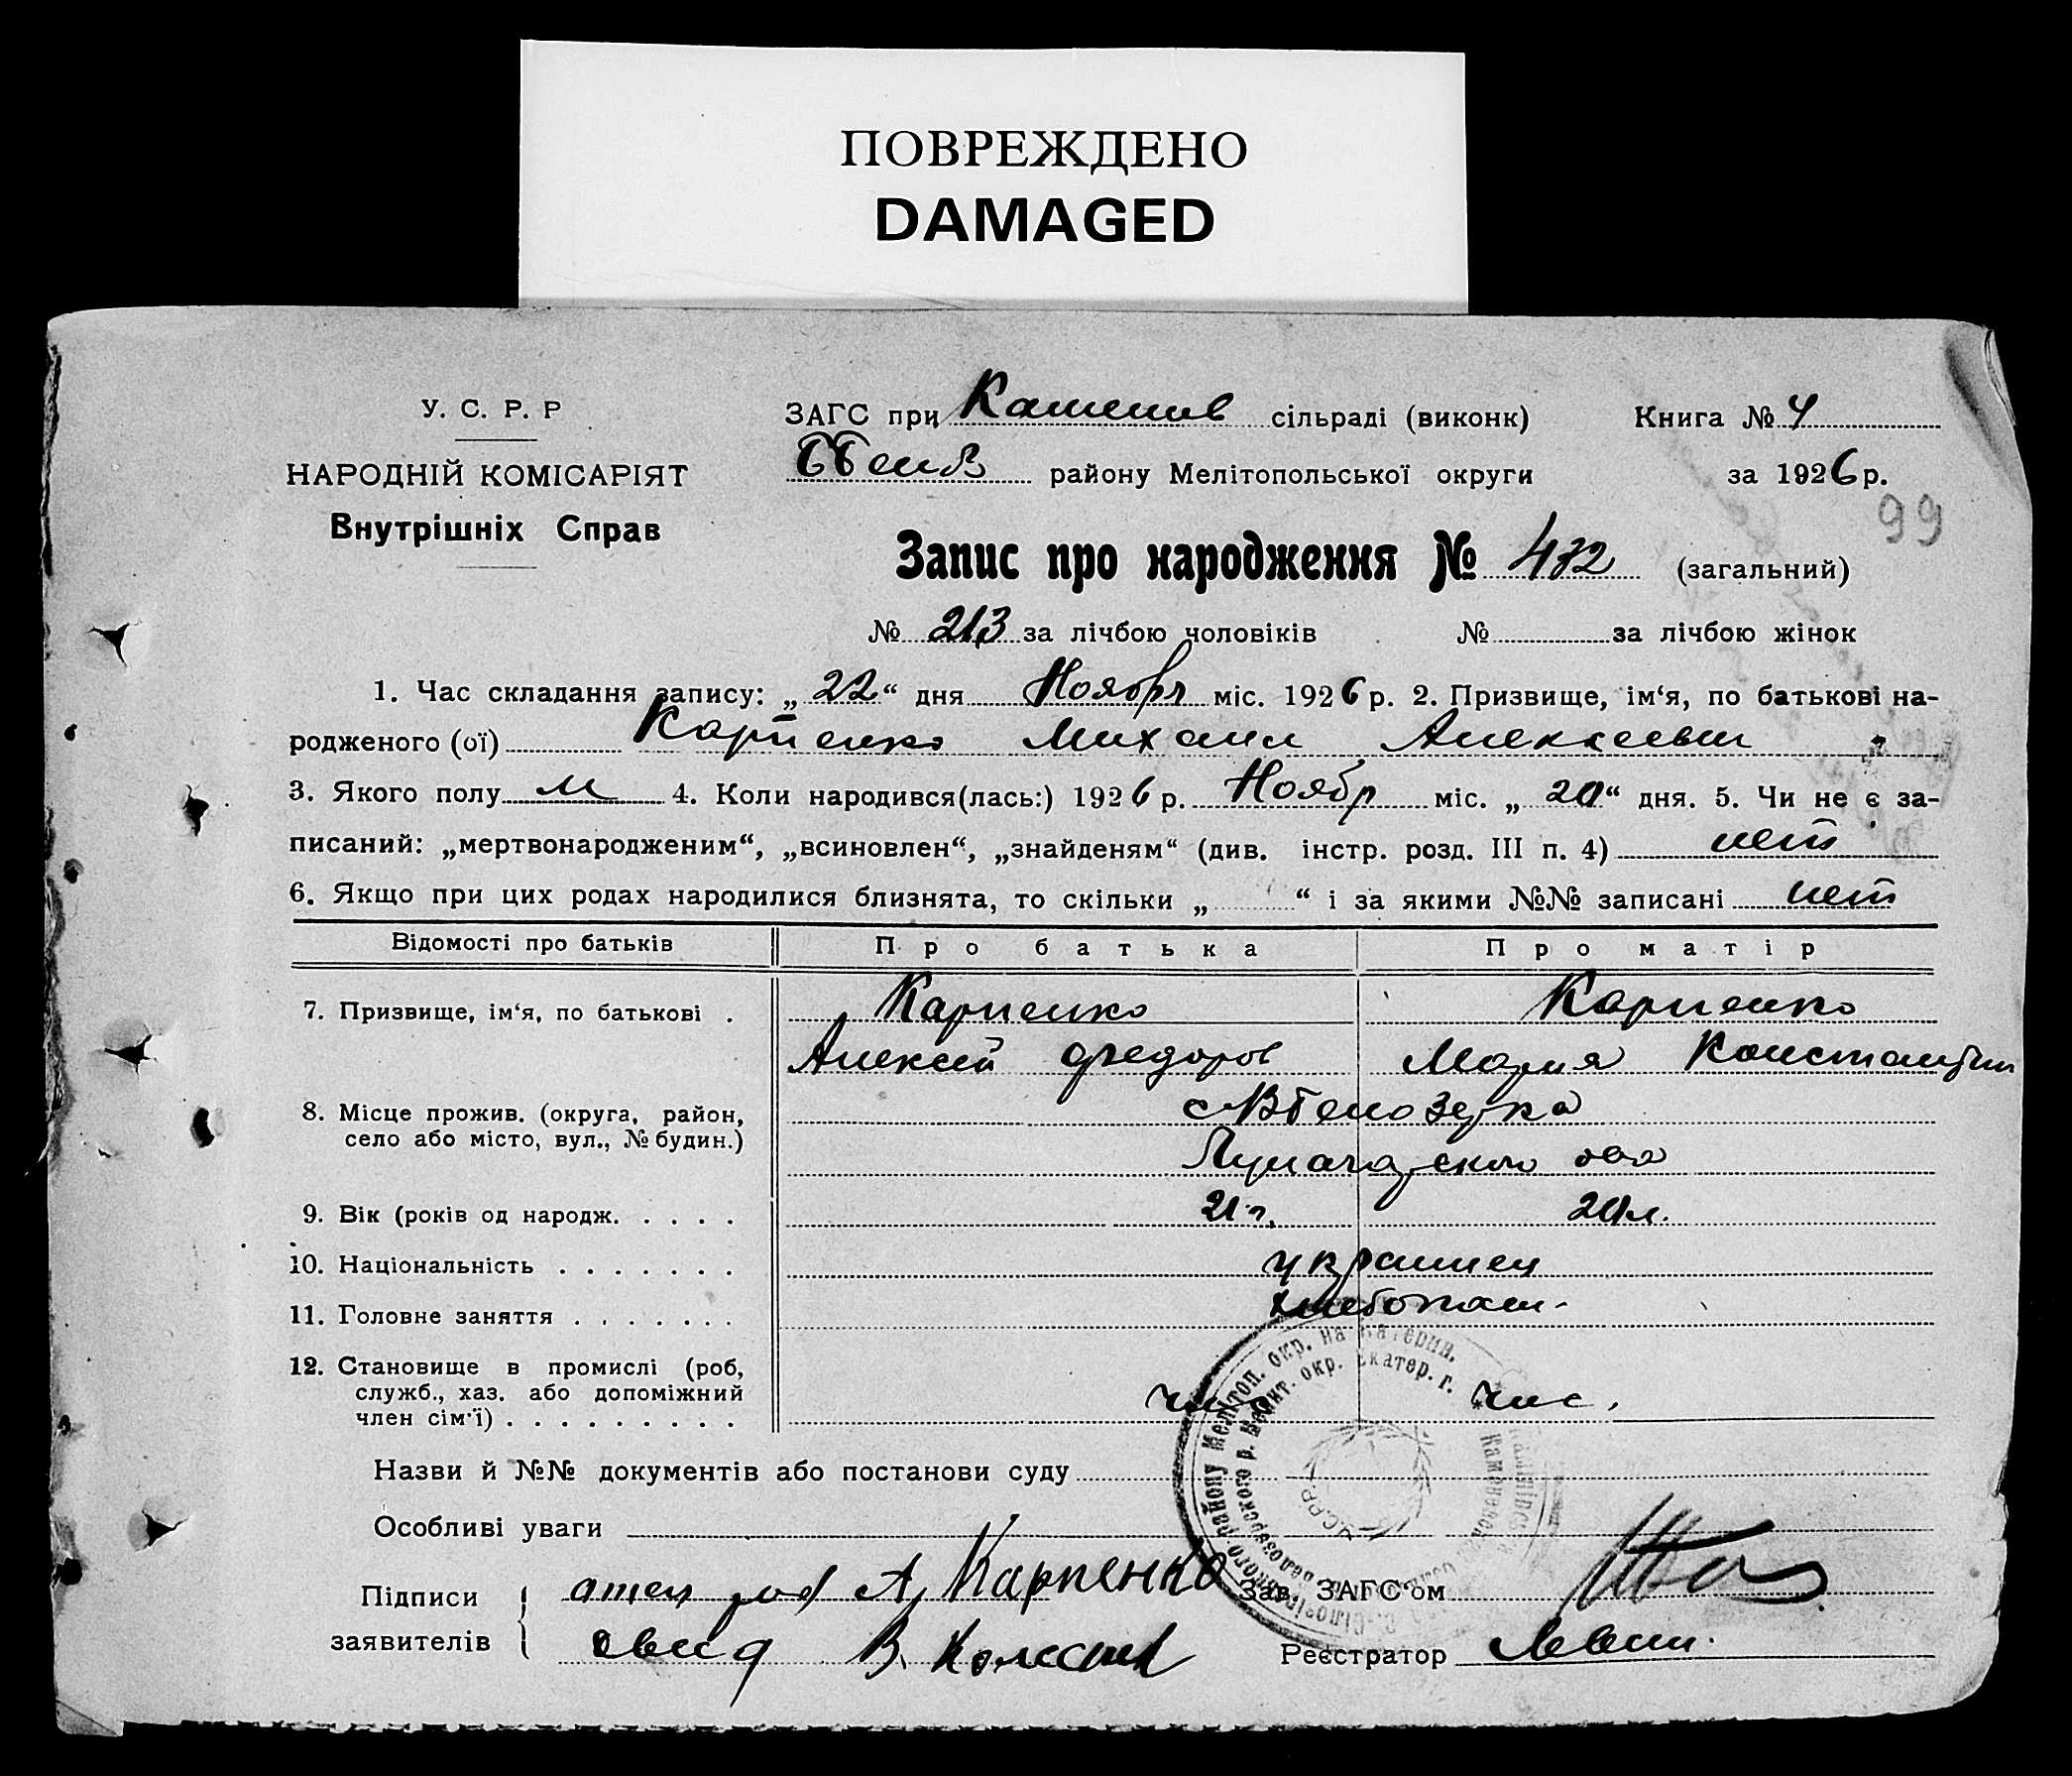 ПОВРЕЖДЕНО
DAMAGED
У. С. Р. Р
НАРОДНІЙ КОМІСАРІЯТ
Внутрішніх Справ
ЗАГС при Каменов сільраді (виконк)
району Мелітопольської округи
Книга № 4
за 1926 р.
99
Запис про народження № 432 (загальний)
№ 213 за лічбою чоловіків № за лічбою жінок
1. Час складання запису: „ 22 “ дня Ноябрь міс. 1926 р. 2. Призвище, ім‘я, по батькові на-
родженого (ої) Карпенко Михаил Алексеевич
3. Якого полу м 4. Коли народився(лась:) 1926 р. Ноябр міс. „ 20 “ дня. 5. Чи не є за-
писаний: „мертвонародженим“, „всиновлен“, „знайденям“ (див. інстр. розд. III п. 4) нет
6. Якщо при цих родах народилися близнята, то скільки „ “ і за якими №№ записані нет
Відомості про батьків Про батька Про матір
7. Призвище, ім‘я, по батькові . Карпенко Карпенко
Алексей Федоров Мария Константин
8. Місце прожив. (округа, район,
село або місто, вул., № будин.)
9. Вік (років од народж. . . . . 21 г. 20 л.
10. Національність . . . . . . . украинец
11. Головне заняття . . . . . . . хлебопаш-
12. Становище в промислі (роб,
служб., хаз. або допоміжний
член сім‘ї) . . . . . . . . . чле чле.
Назви й №№ документів або постанови суду
Особливі уваги
Підписи
заявителів
отец А. Карпенко
свид В.
Зав. ЗАГС‘ом
Реєстратор
У.С.Р.Р.